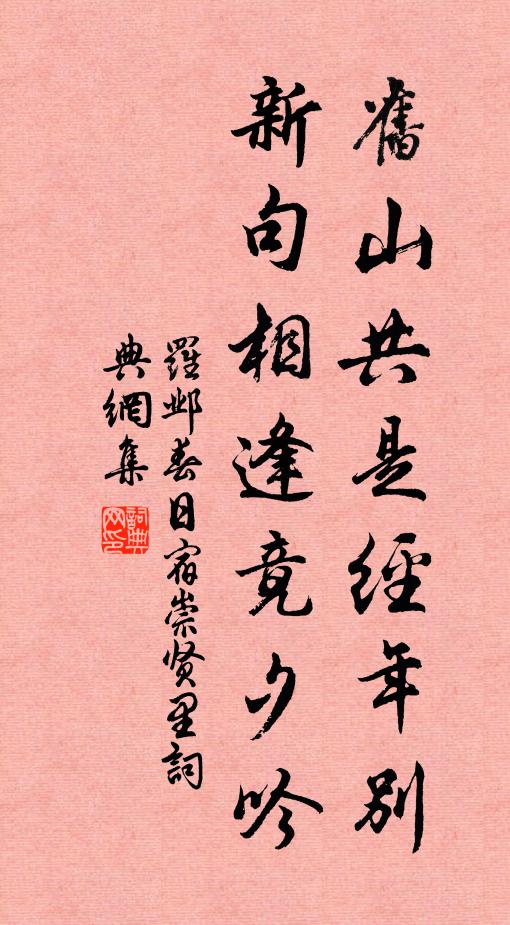 舊山共是經年別
新句相逢竟夕吟
羅鄴春日宿崇贤里詞
典網集
詞典网印